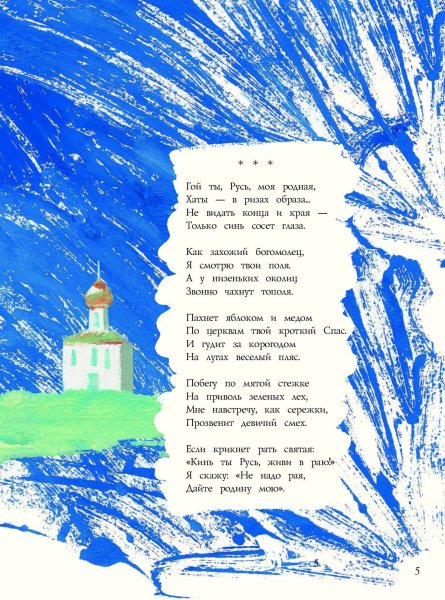 * * *
Гой ты, Русь, моя родная,
Хаты — в ризах образа...
Не видать конца и края —
Только синь сосет глаза.
Как захожий богомолец,
Я смотрю твои поля.
А у низеньких околиц
Звонно чахнут тополя.
Пахнет яблоком и медом
По церквам твой кроткий Спас.
И гудит за корогодом
На лугах веселый пляс.
Побегу по мятой стежке
На приволь зеленых лех,
Мне навстречу, как сережки,
Прозвенит девичий смех.
Если крикнет рать святая:
«Кинь ты Русь, живи в раю!»
Я скажу: «Не надо рая,
Дайте родину мою».
5